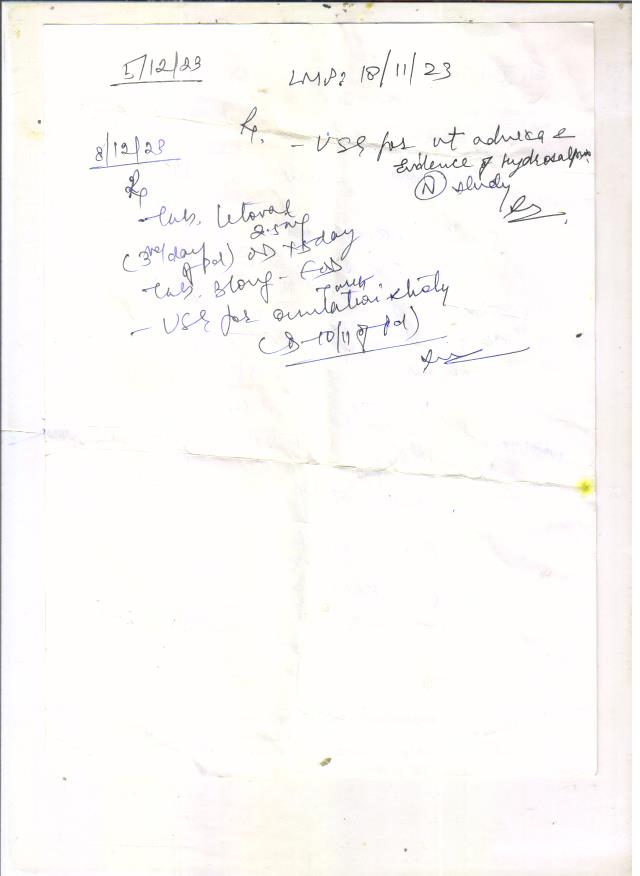 5/12/23
LMP: 18/11/23
Rx. - USG for ut adnexa &
Evidence of Hydrosalpinx
(N) study
8/12/23
Rx
- Tab. Letoval
2.5mg
(3rd day of pd) OD x 5 day
- Tab. 3 long - EOD
- USG for ovulation study
(8-10/11 of pd)